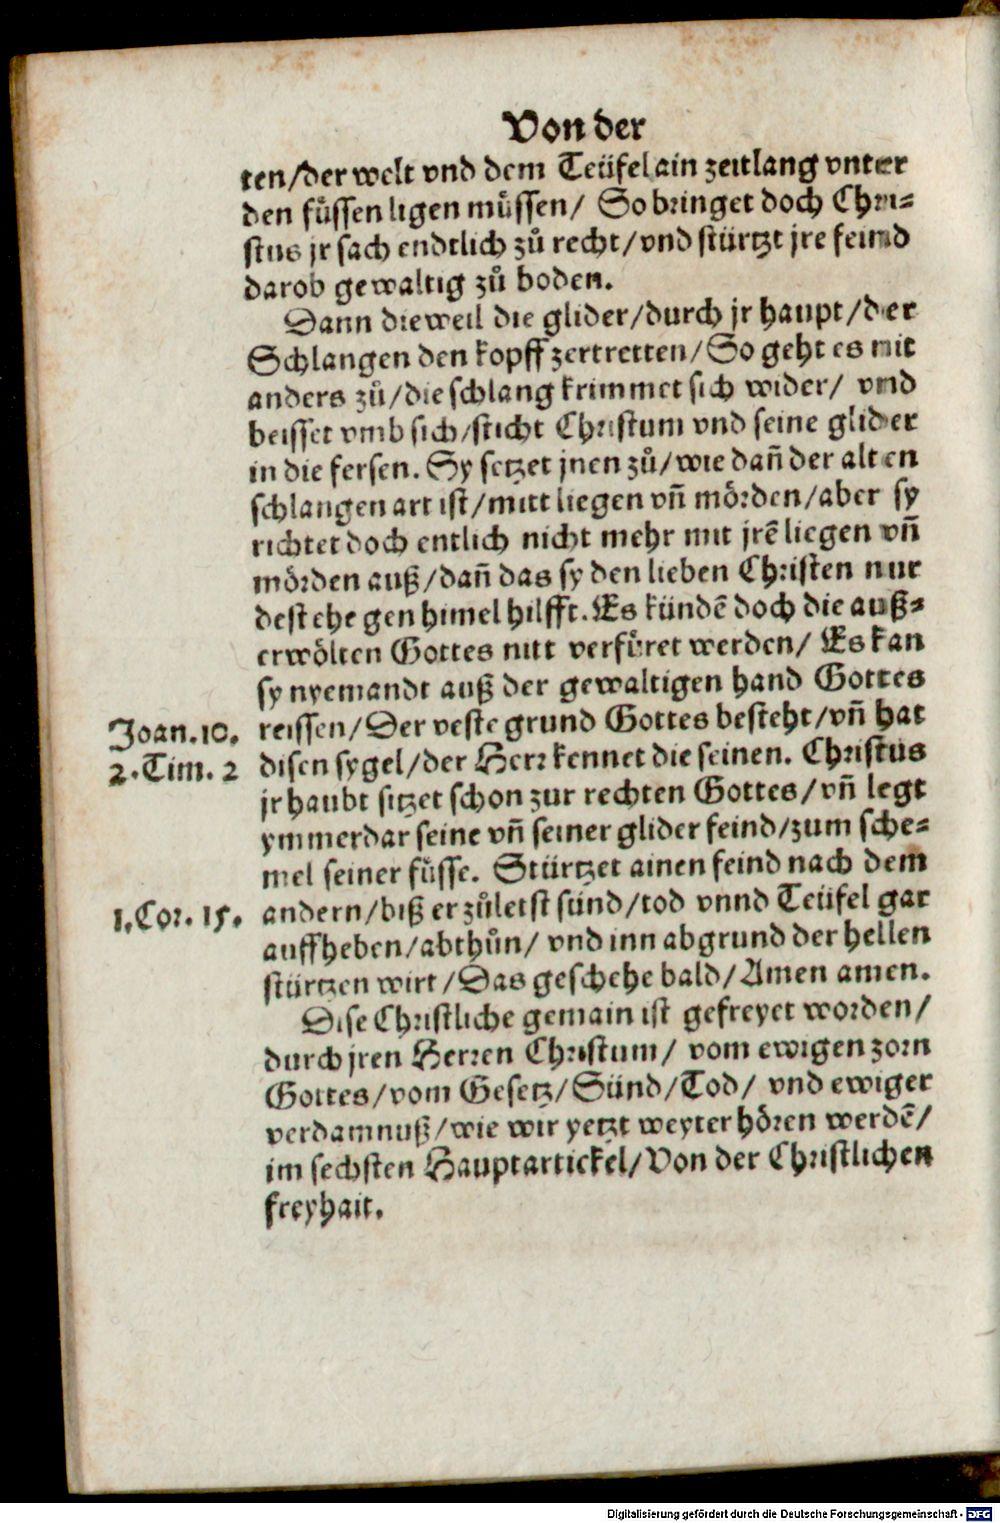 Von der
ten/der welt vnd dem Teüfel ain zeitlang vnter
den fuͤssen ligen muͤssen/ So bringet doch Chri-
stus jr sach endtlich zuͦ recht/vnd stürtzt jre feind
darob gewaltig zuͦ boden.
Dann dieweil die glider/durch jr haupt/der
Schlangen den kopff zertretten/So geht es nit
anders zuͦ/die schlang krimmet sich wider/ vnd
beisset vmb sich/sticht Christum vnd seine glider
in die fersen. Sy setzet jnen zuͦ/wie dañ der alten
schlangen art ist/mitt liegen vñ mörden/aber sy
richtet doch entlich nicht mehr mit jrẽ liegen vñ
mörden auß/dañ das sy den lieben Christen nur
dest ehe gen himel hilfft. Es kündẽ doch die auß-
erwölten Gottes nitt verfuͤret werden/ Es kan
sy nyemandt auß der gewaltigen hand Gottes
Joan. 10. reissen/Der veste grund Gottes besteht/vñ hat
2. Tim. 2 disen sygel/der Herr kennet die seinen. Christus
jr haubt sitzet schon zur rechten Gottes/vñ legt
ymmerdar seine vñ seiner glider feind/zum sche-
mel seiner fuͤsse. Stürtzet ainen feind nach dem
1. Cor. 15. andern/biß er zuͦletst sünd/tod vnnd Teüfel gar
auffheben/abthuͦn/ vnd inn abgrund der hellen
stürtzen wirt/Das geschehe bald/Amen amen.
Dise Christliche gemain ist gefreyet worden/
durch jren Herren Christum/ vom ewigen zorn
Gottes/vom Gesetz/Sünd/Tod/ vnd ewiger
verdamnuß/wie wir yetzt weyter hören werdẽ/
im sechsten Hauptartickel/Von der Christlichen
freyhait.
Digitalisierung gefördert durch die Deutsche Forschungsgemeinschaft - DFG